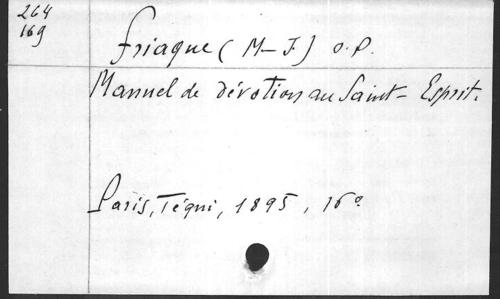 264
169
Friaque (M-J) O.P.
Manuel de dévotion au Saint-Esprit.
Paris, Téqui, 1895, 16°